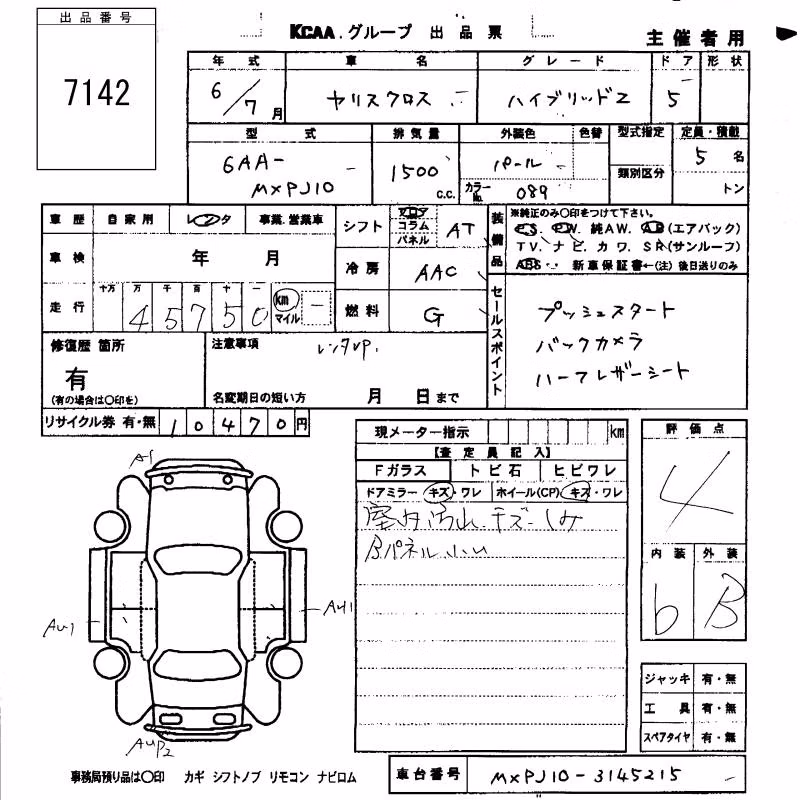 出品番号
7142
KCAA.グループ 出品票
主催者用
年式 車名 グレード ドア 形状
6/7月 ヤリスクロス ハイブリッドZ 5
型式 排気量 外装色 色替 型式指定 定員・積載
6AA-MXPJ10 1500 C.C. パール カラーNo. 089 類別区分 5名 トン
車歴 自家用 レンタ 事業.営業車
シフト フロア コラム パネル AT
装備品
※純正のみ〇印をつけて下さい。
P.S. P.W. 純AW. AB(エアバック)
TV. ナビ. カワ. SR(サンルーフ)
ABS・・ 新車保証書←(注)後日送りのみ
車検 年 月
冷房 AAC
走行 十万 万 千 百 十 一
45750 km マイル
燃料 G
セールスポイント
プッシュスタート
バックカメラ
ハーフレザーシート
修復歴 箇所
有
(有の場合は〇印を)
注意事項
レンタUP.
名変期日の短い方 月 日まで
リサイクル券 有・無 10470円
現メーター指示 km
【査定員記入】
Fガラス トビ石 ヒビワレ
ドアミラー キズ・ワレ ホイール(CP) キズ・ワレ
室内汚れ.キズ.シミ
評価点
4
内装 外装
b B
A1
AU1
AU1
AUP2
ジャッキ 有・無
工具 有・無
スペアタイヤ 有・無
事務局預り品は〇印 カギ シフトノブ リモコン ナビロム
車台番号 MXPJ10-3145215